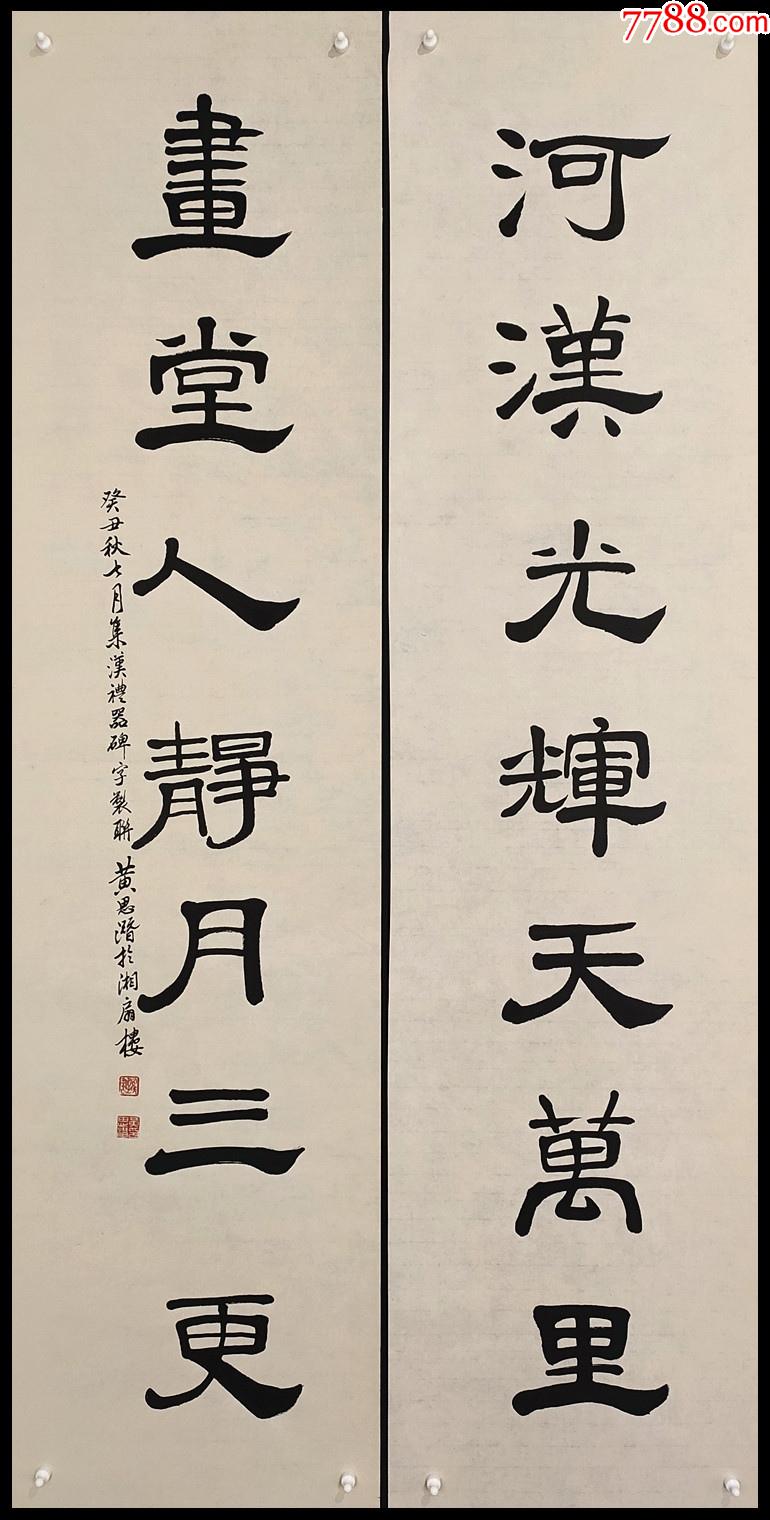 7788.com
河漢光輝天萬里
畫堂人靜月三更
癸丑秋七月集漢禮器碑字製聯 黃思潛於湘扇樓